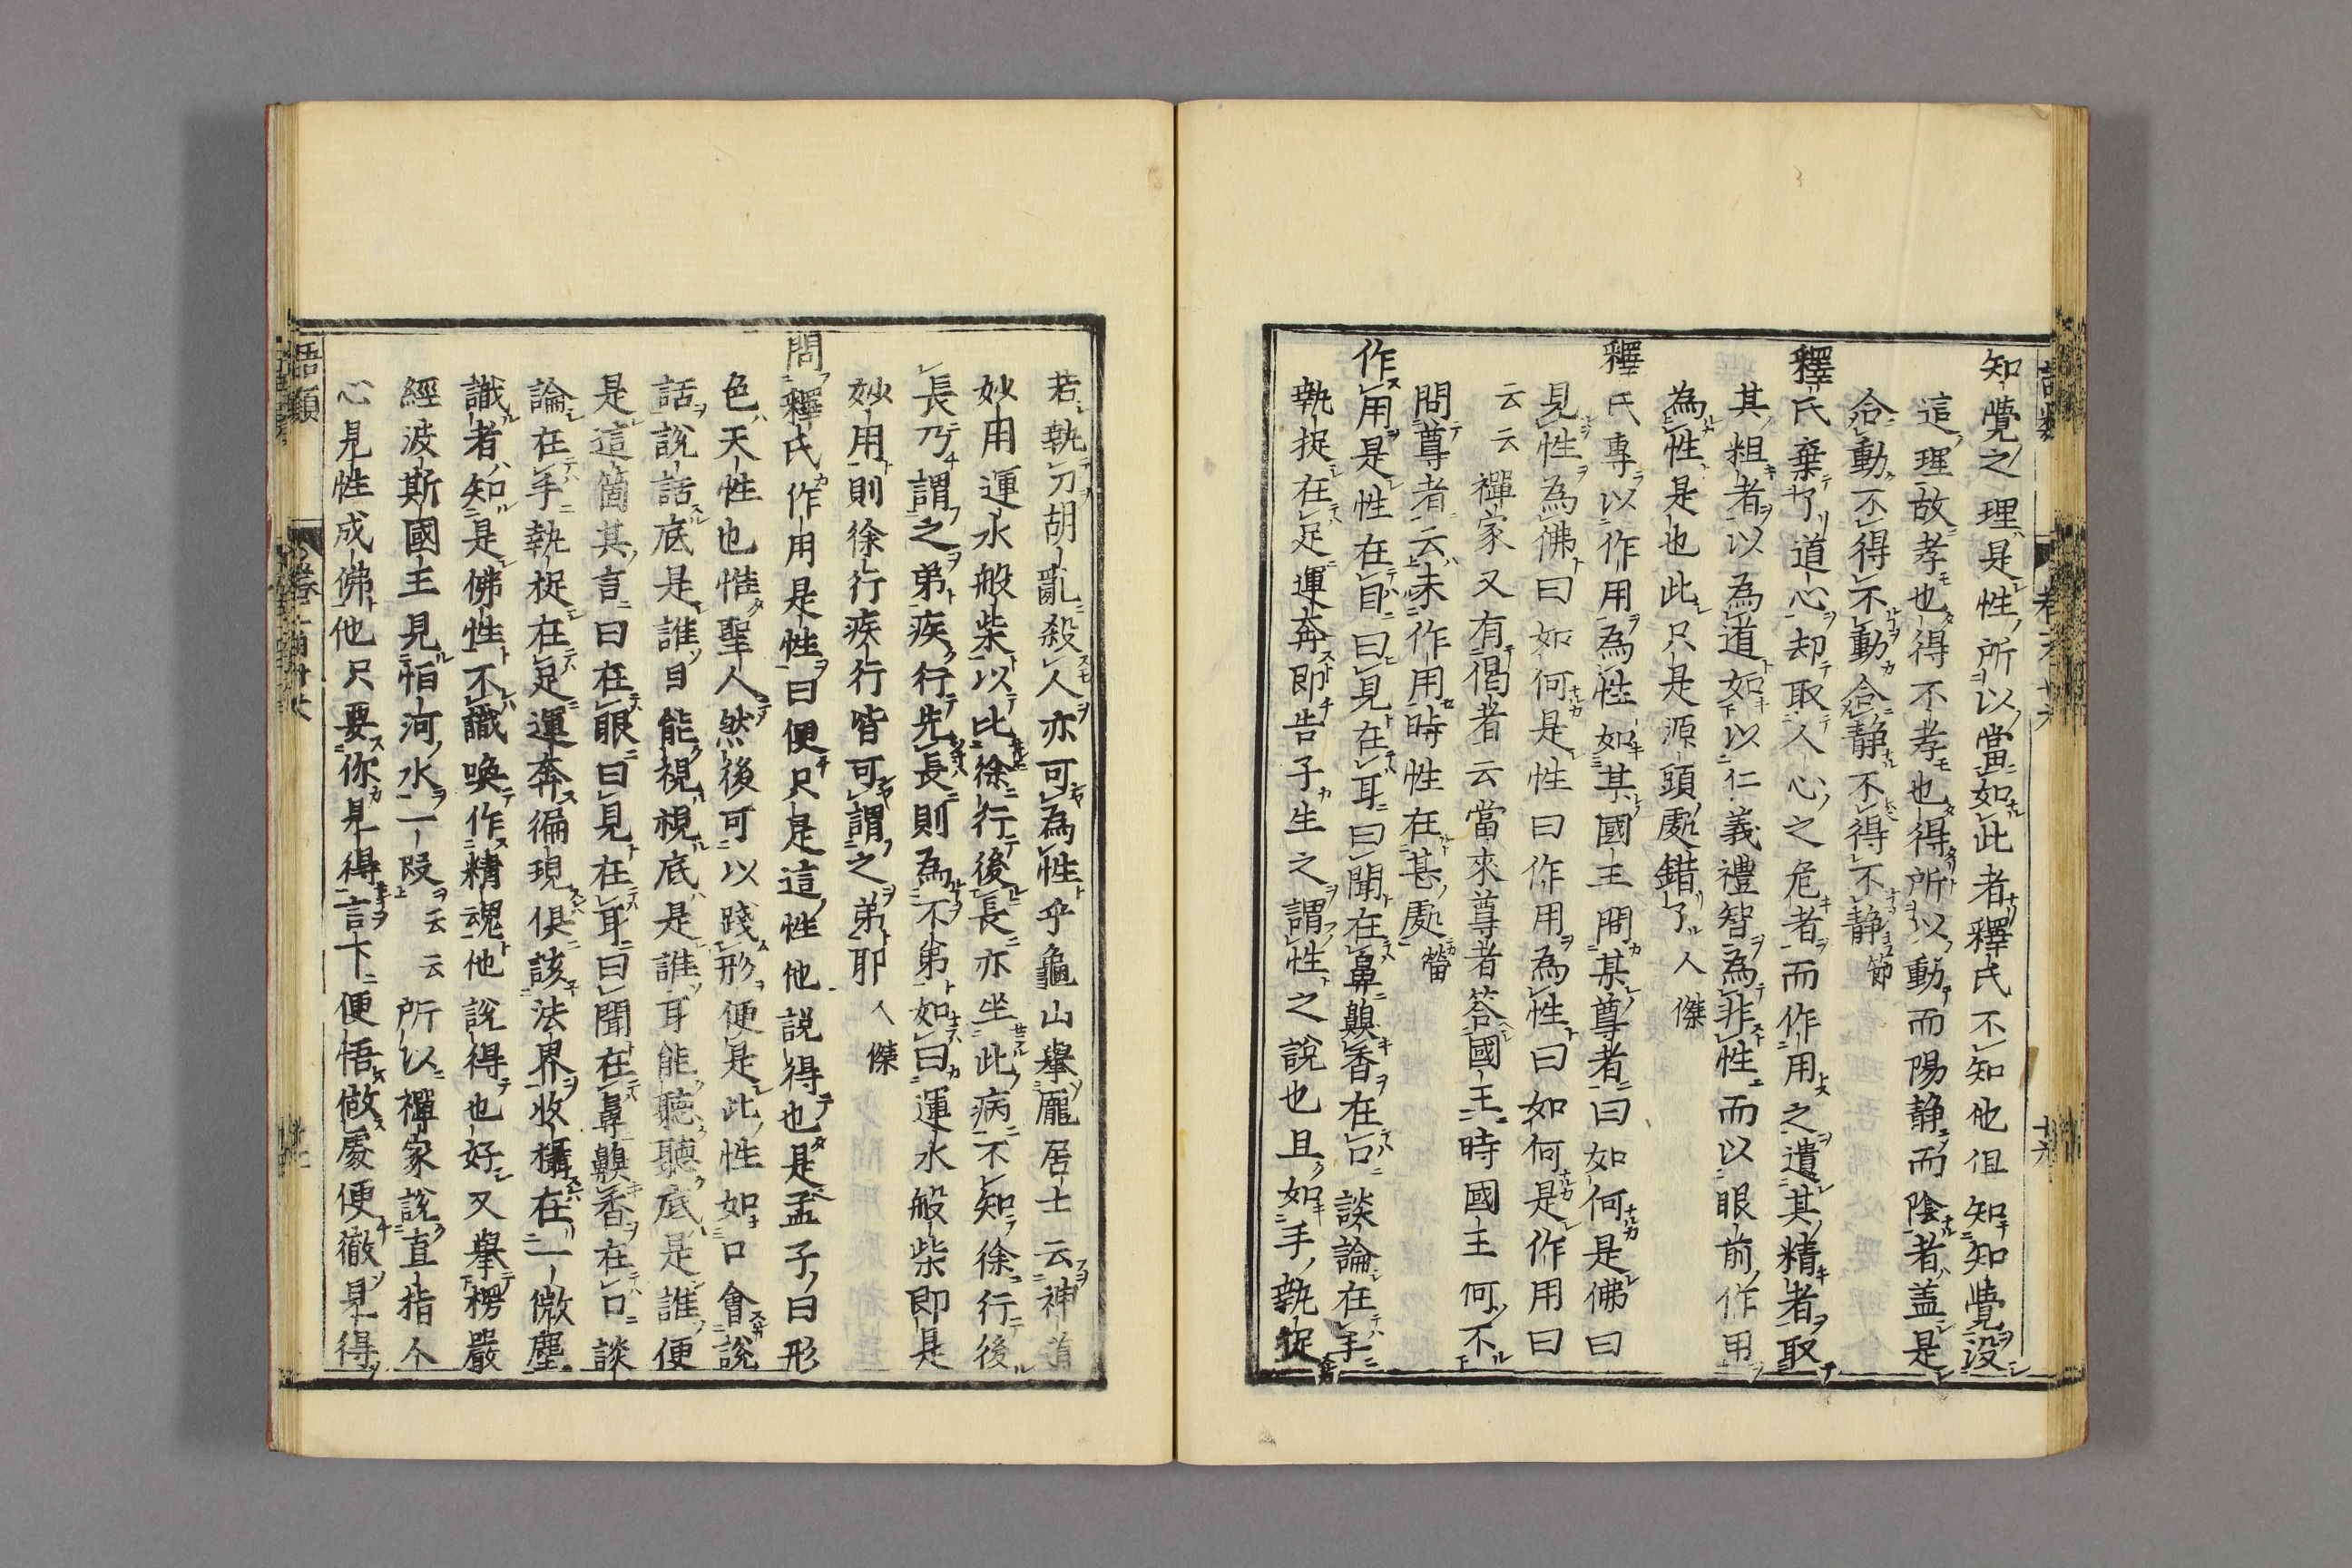 知覺之理是性所以當如此者釋氏不知他但知知覺没
這理故孝也得不孝也得所以動而陽静而陰者盖是
合動不得不動合静不得不静 節
釋氏棄了道心却取人心之危者而作用之遺其精者取
其粗者以為道如以仁義禮智為非性而以眼前作用
為性是也此只是源頭處錯了 人傑
釋氏專以作用為性如某國王問某尊者曰如何是佛曰
見性為佛曰如何是性曰作用為性曰如何是作用曰
云云禪家又有偈者云當來尊者答國王時國王何不
問尊者云未作用時性在甚處 㽦
作用是性在目曰見在耳曰聞在鼻齅香在口談論在手
執捉在足運奔即告子生之謂性之說也且如手執捉
若執刀胡亂殺人亦可為性乎龜山舉龐居士云神通
妙用運水般柴以比徐行後長亦坐此病不知徐行後
長乃謂之弟疾行先長則為不弟如曰運水般柴即是
妙用則徐行疾行皆可謂之弟耶 人傑
問釋氏作用是性曰便只是這性他説得也是孟子曰形
色天性也惟聖人然後可以踐形便是此性如口會說
話說話底是誰目能視視底是誰耳能聽聽底是誰便
是這箇其言曰在眼曰見在耳曰聞在鼻齅香在口談
論在手執捉在足運奔徧現俱該法界收攝在一微塵
識者知是佛性不識喚作精魂他說得也好又舉楞嚴
經波斯國王見恒河水一段云云所以禪家說直指人
心見性成佛他只要你見得言下便悟做處便徹見得
語類
卷一百廿六